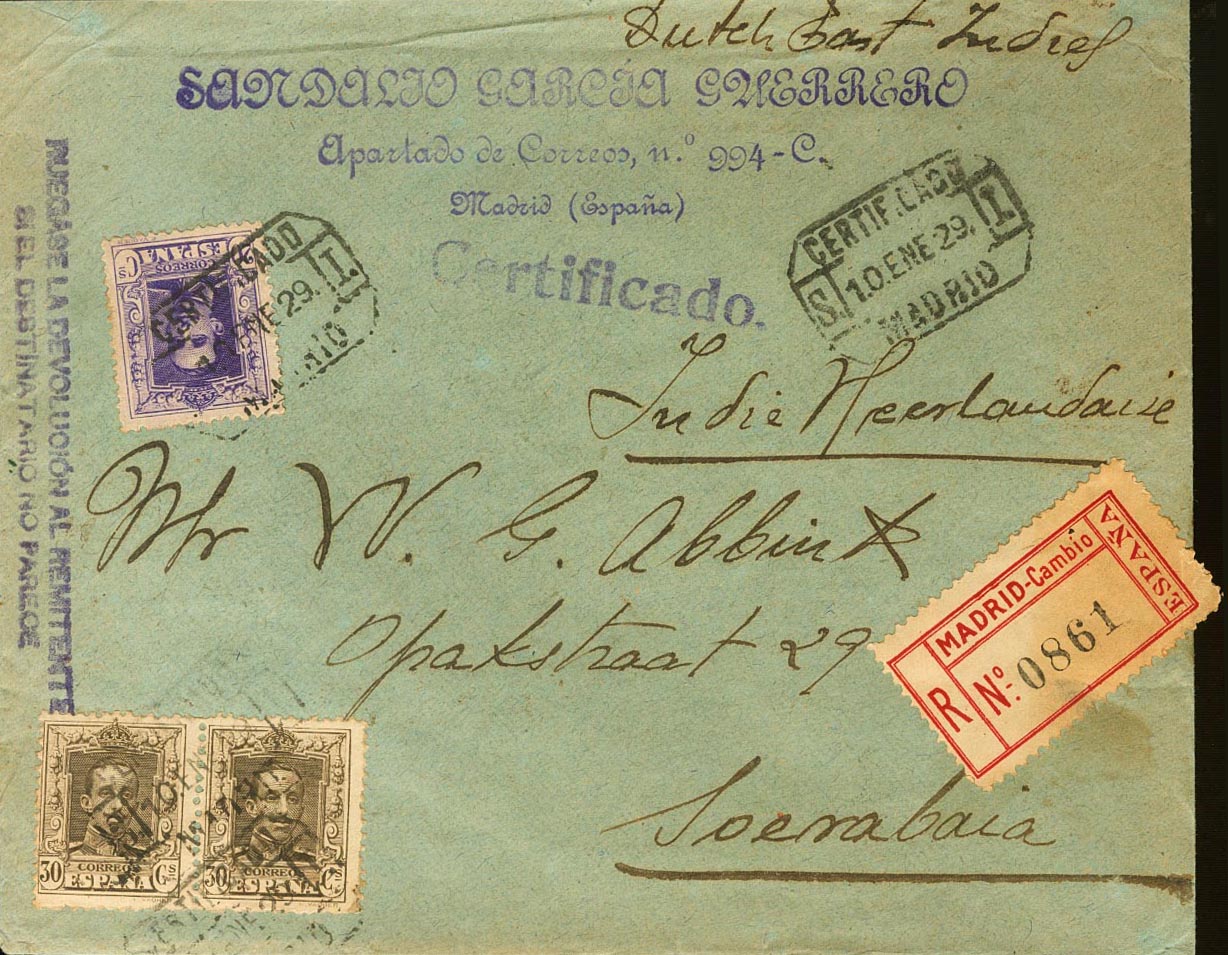 Dutch East Indies
SANDALIO GARCÍA GUERRERO
Apartado de Correos, n.º 994-C.
Madrid (España)
Certificado.
CERTIFICADO
S. 10.ENE.29. I.
MADRID
CERTIFICADO
ENE 29. I.
CORREOS
ESPAÑA
Indie Neerlandaise
Mr W. G. Abbink
Opakstraat 29
Soerabaia
MADRID-Cambio
ESPAÑA
R Nº. 0861
RUEGASE LA DEVOLUCIÓN AL REMITENTE
SI EL DESTINATARIO NO PARECE
CORREOS
30 ESPAÑA Cs
CORREOS
30 ESPAÑA Cs